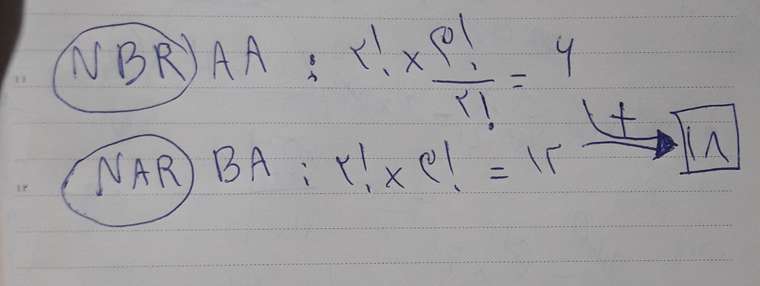 NBR AA : ۲! × ۳! / ۲! = ۶
NAR BA : ۲! × ۳! = ۱۲ + ۱۸